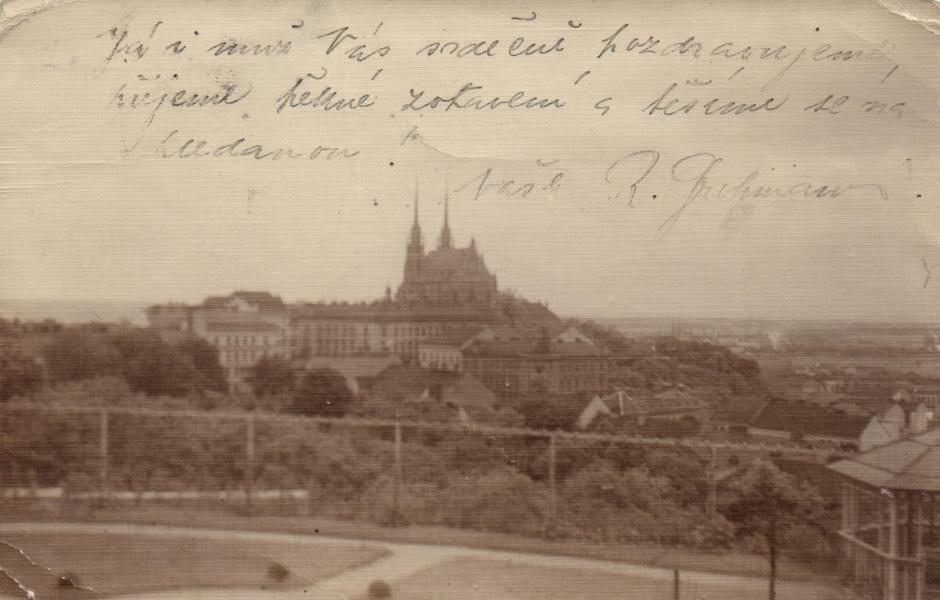 Já i muž Vás srdečně pozdravujeme
přejeme pěkné zotavení a těšíme se na
shledanou
Vaše R.